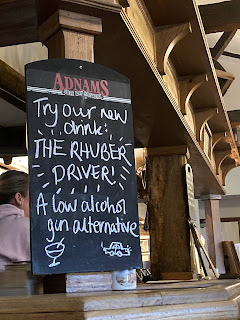 ADNAMS
Try our new
drink:
THE RHUBER
DRIVER!
A low alcohol
gin alternative